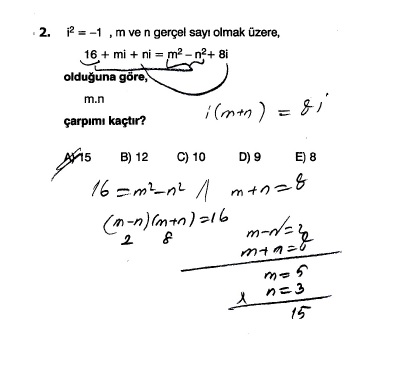 2. i² = –1 , m ve n gerçel sayı olmak üzere,
16 + mi + ni = m² – n² + 8i
olduğuna göre,
m.n
çarpımı kaçtır?
i(m+n) = 8i
A) 15 B) 12 C) 10 D) 9 E) 8
16 = m² – n² // m + n = 8
(m–n)(m+n) = 16
2 8
m – n = 2
m + n = 8
m = 5
x n = 3
15